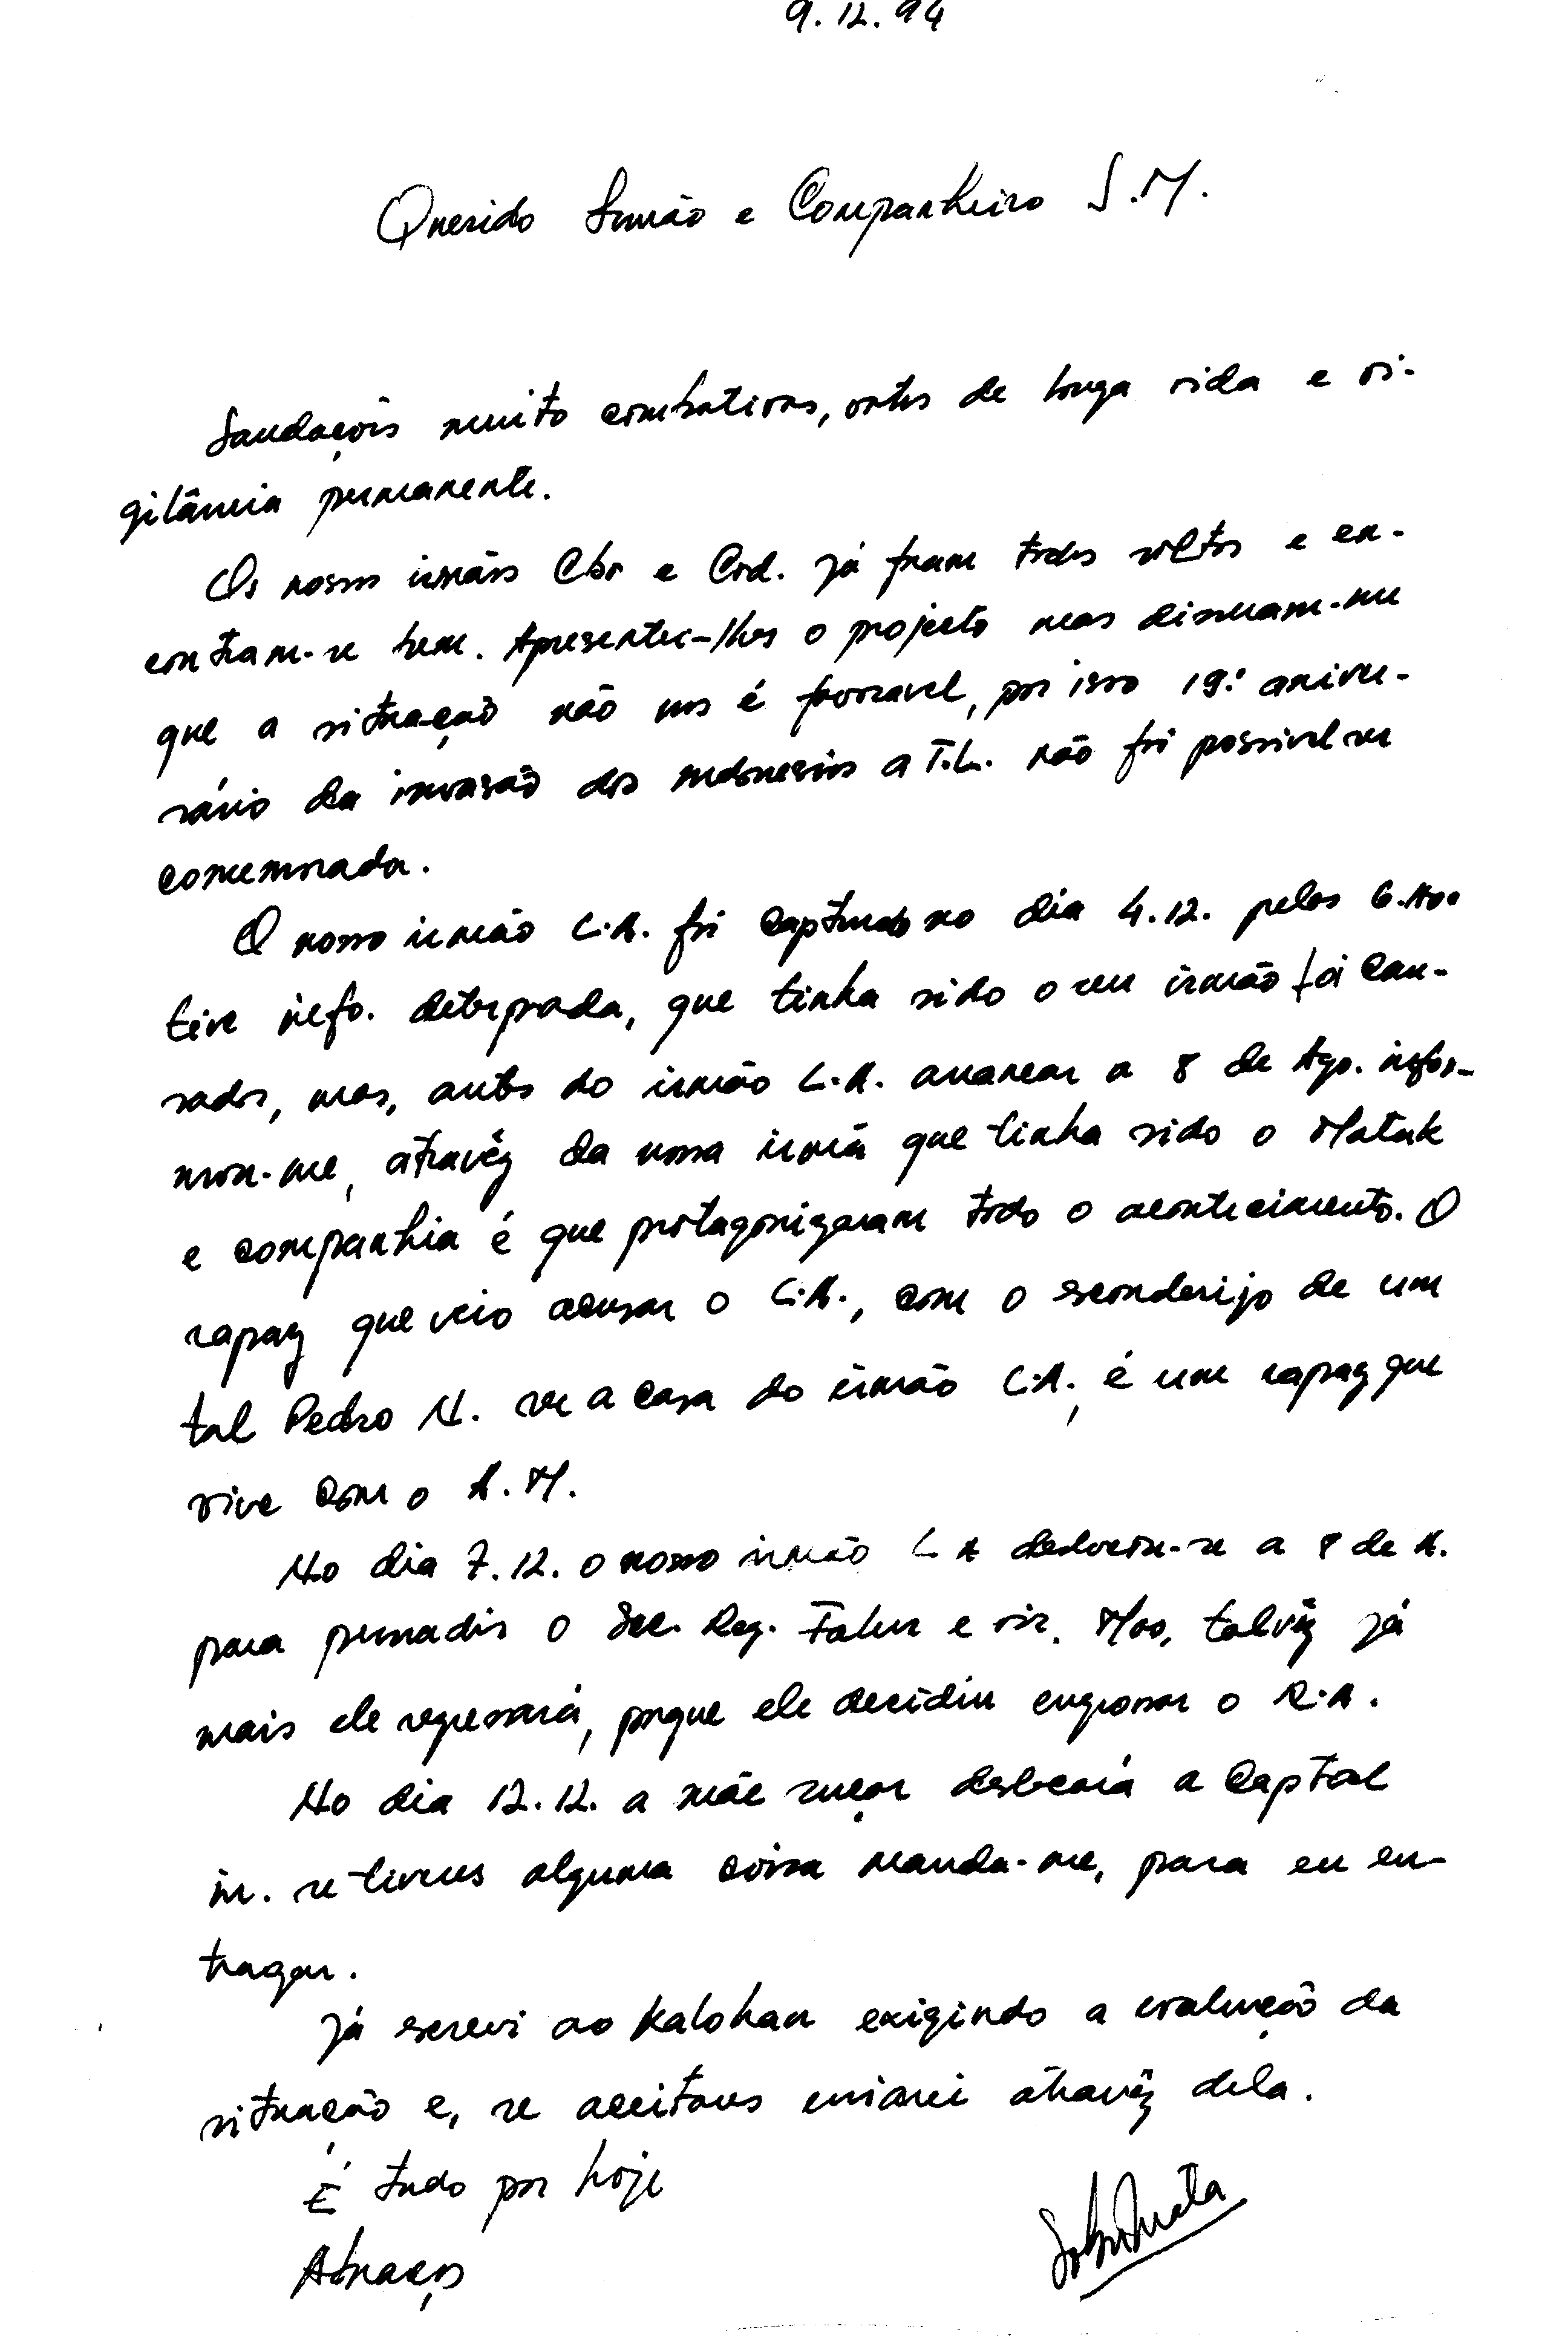 9.12.94
Querido Irmão e Companheiro S.M.
Saudações muito combativas, votos de longa vida e vi-
gilância permanente.
Os nossos irmãos Cbr e Crd. já foram todos soltos e en-
contram-se bem. Apresentei-lhes o projecto mas disseram-me
que a situação não nos é favoravel, por isso 19.º aniver-
sário da invasão dos indonesios a T.L. não foi possivel ser
comemorada.
O nosso irmão L.A. foi capturado no dia 4.12. pelos
tive info. deturpada, que tinha sido o seu irmão foi cau-
sador, mas, antes do irmão L.A. avancar a 8 de Ago. infor-
mou-me, atravéz da nossa irmã que tinha sido o Matak
e companhia é que protagonizaram todo o acontecimento. O
rapaz que veio acusar o L.A., com o esconderijo de um
tal Pedro N. na casa do irmão L.A., é um rapaz que
vive com o A.M.
No dia 7.12. o nosso irmão L A deslocou-se a 8 de A.
para persuadir o Sec. Reg. Falur e vir. Mas, talvêz já
mais ele regressará, porque ele decidiu engrossar o R.A.
No dia 12.12. a mãe descerá a Capital
in. se tiveres alguma coisa manda-me, para eu en-
tregar.
Já screvi ao Kalohan exigindo a evolução da
situação e, se aceitares enviarei atravêz dela.
É tudo por hoje
Abraços